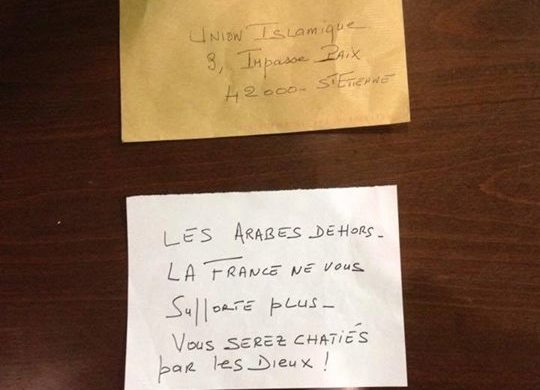 UNION ISLAMIQUE
9, Impasse PAIX
42000- ST ETIENNE
LES ARABES DEHORS_
LA FRANCE NE VOUS
Supporte plus_
VOUS SEREZ CHATIÉS
par les DIEUX !